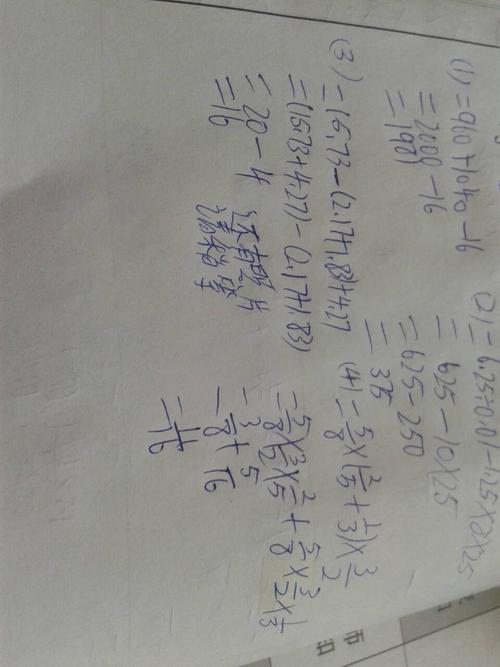 (1) =960+1040-16
=2000-16
=1984
(2) =6.25÷0.01-1.25×8×25
=625-10×25
=625-250
=375
(3) =15.73-(2.17+1.83)+4.27
=(15.73+4.27)-(2.17+1.83)
=20-4
=16
还有照片
请稍等
(4) =5/8×(2/5+1/3)×3/2
=5/8×3/2×2/5+5/8×3/2×1/3
=3/8+5/16
=11/16